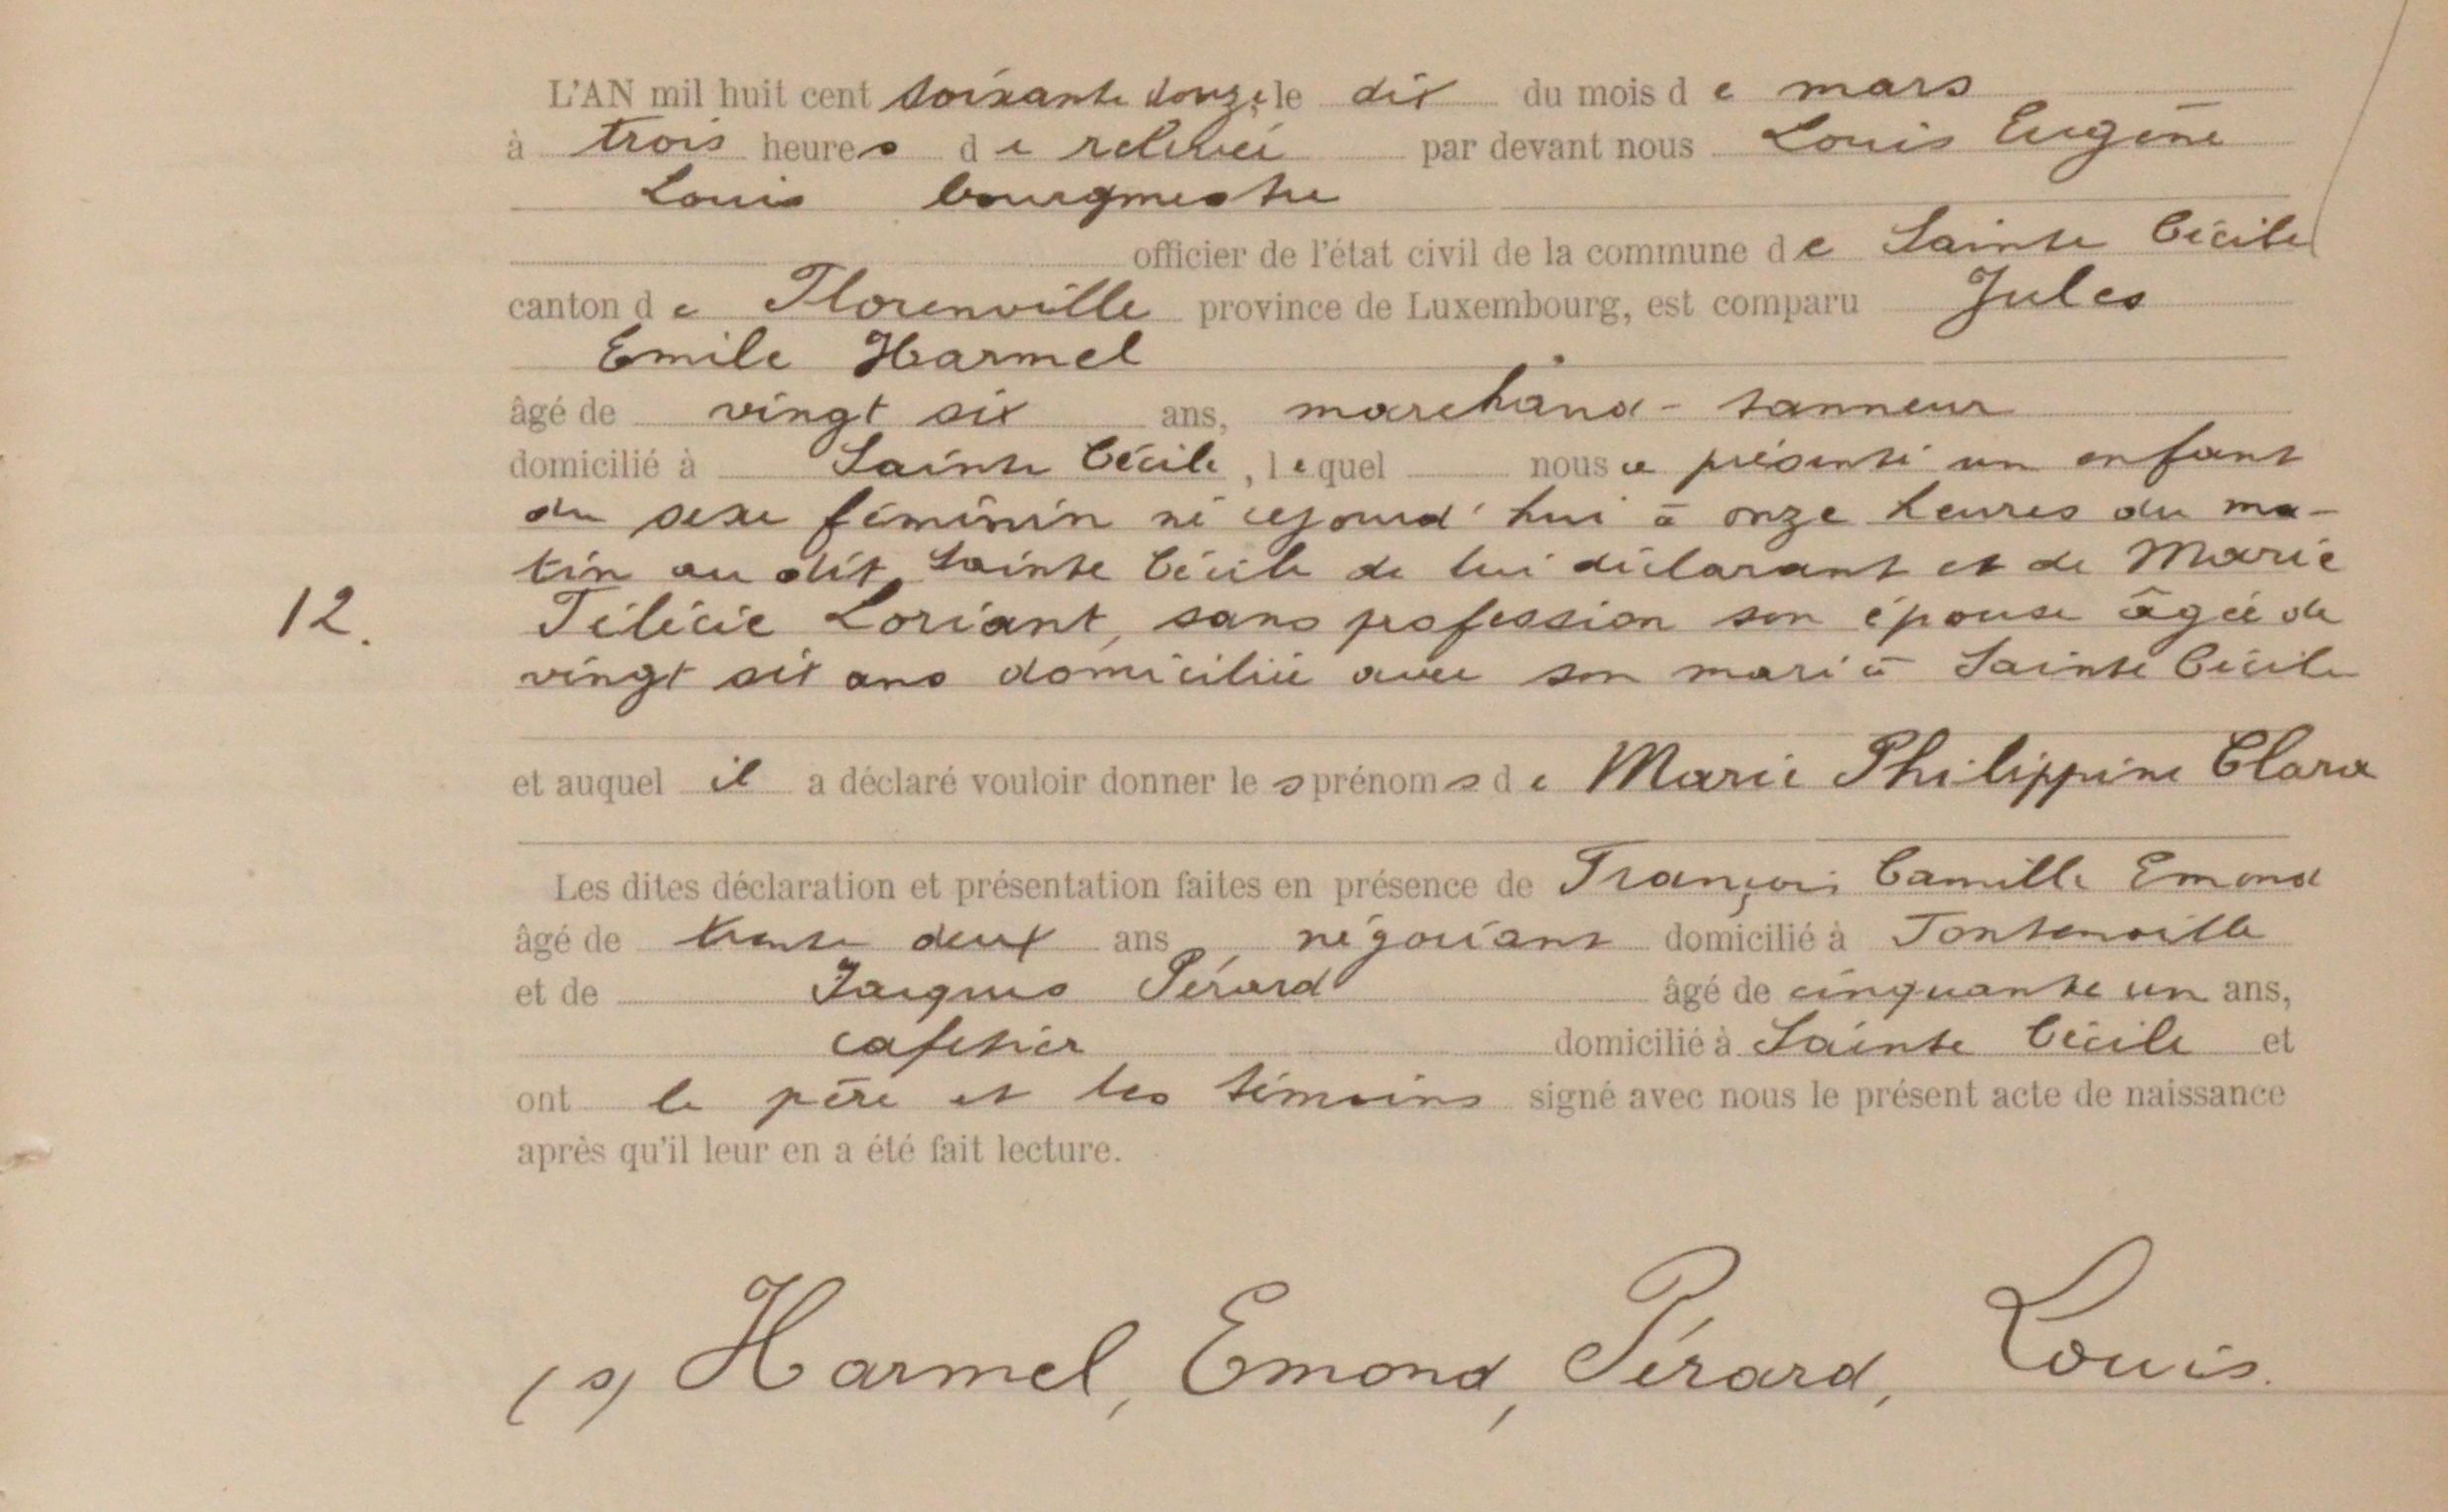 L'AN mil huit cent soixante douze le dix du mois de mars
à trois heures de relevée par devant nous Louis Eugène
Louis bourgmestre
officier de l'état civil de la commune de Sainte Cécile
canton de Florenville province de Luxembourg, est comparu Jules
Emile Harmel
âgé de vingt six ans, marchand-tanneur
domicilié à Sainte Cécile, lequel nous a présenté un enfant
du sexe féminin né cejourd'hui à onze heures du ma-
tin au dit Sainte Cécile de lui déclarant et de Marie
12. Félicie Loriant, sans profession son épouse âgée de
vingt six ans domiciliée avec son mari à Sainte Cécile
et auquel il a déclaré vouloir donner les prénoms de Marie Philippine Clara
Les dites déclaration et présentation faites en présence de François Camille Emond
âgé de trente deux ans, négociant domicilié à Fontenoille
et de Jacques Pérard âgé de cinquante un ans,
cafetier domicilié à Sainte Cécile et
ont le père et les témoins signé avec nous le présent acte de naissance
après qu'il leur en a été fait lecture.
(s) Harmel, Emond, Pérard, Louis.